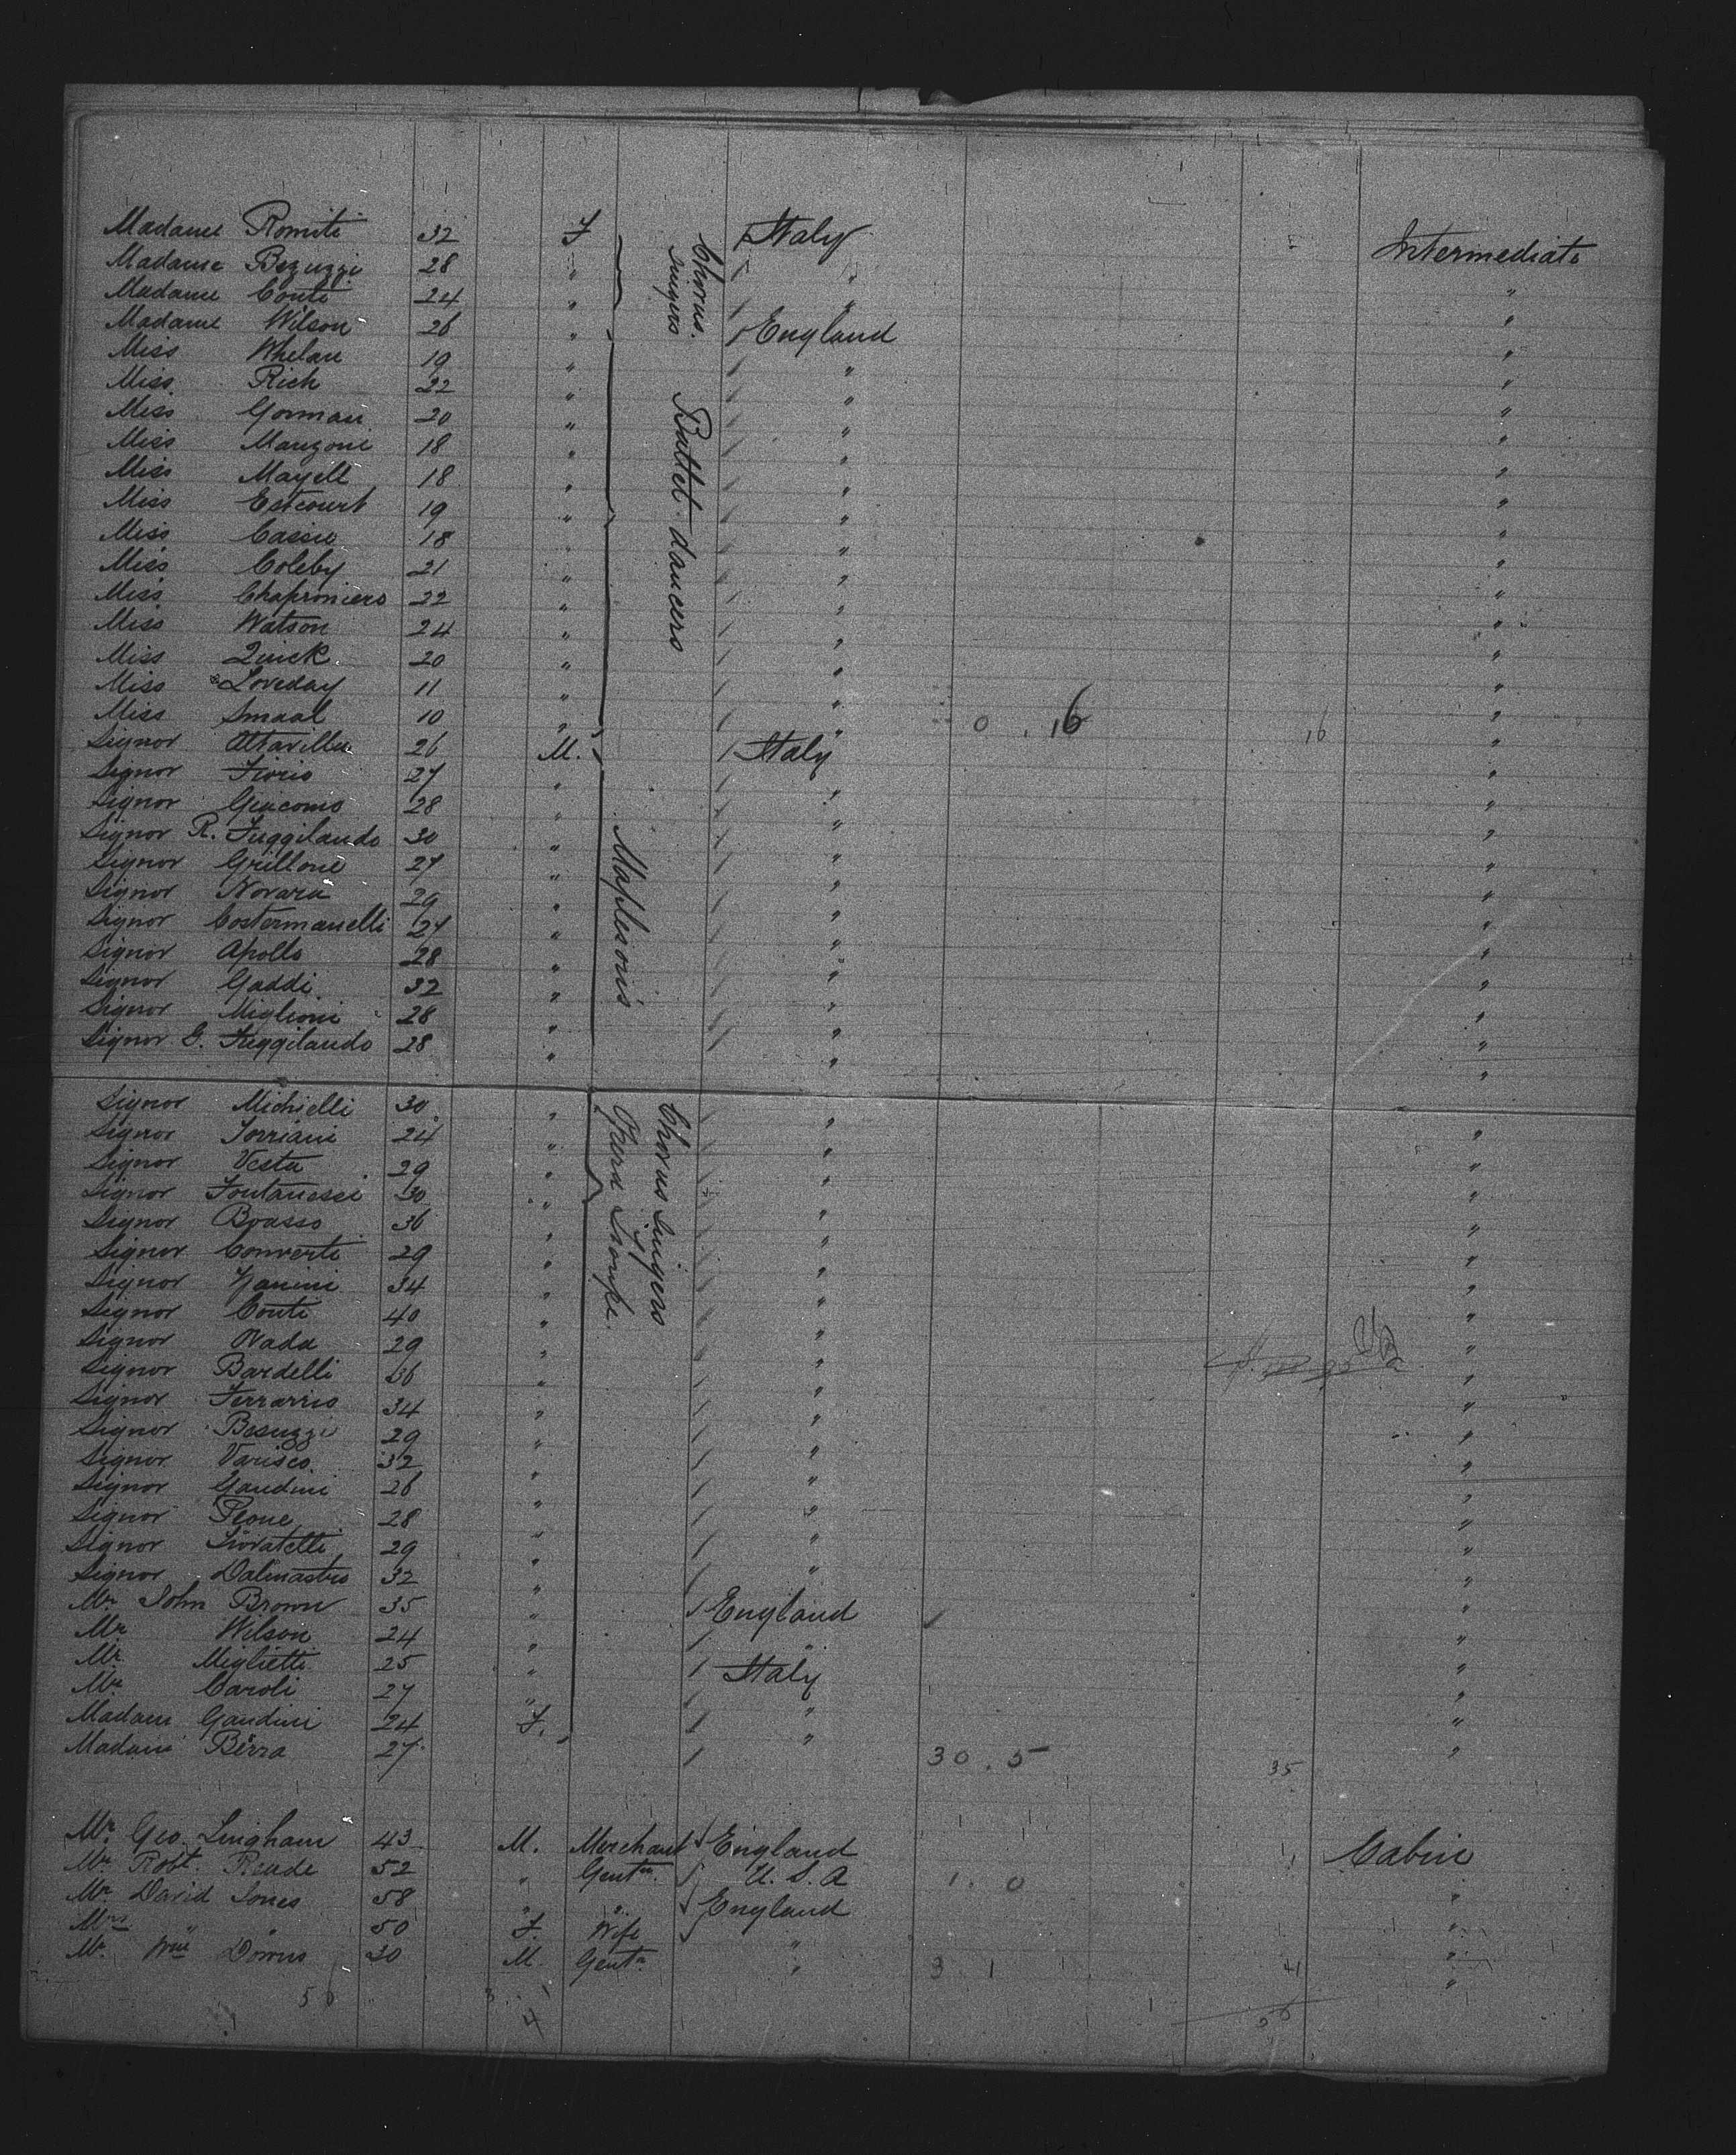 Madame Romiti 32 F Chorus singers Italy Intermediate
Madame Bezuzzi 28 " " "
Madame Conti 24 " " "
Madame Wilson 26 " England "
Miss Whelan 19 " Ballet dancers " "
Miss Rich 22 " " "
Miss Gorman 20 " " "
Miss Manzoni 18 " " "
Miss Mayell 18 " " "
Miss Estcourt 19 " " "
Miss Cassie 18 " "
Miss Coleby 21 " " "
Miss Chaproniere 22 " " "
Miss Watson 24 " " "
Miss Quick 20 " " "
Miss Loveday 11 " " "
Miss Smaal 10 " " 0 . 16 16 "
Signor Altavilla 26 M. Italy "
Signor Fiorio 27 " " "
Signor Giacomo 28 " " "
Signor R. Fuggilando 30 " Maplesons " "
Signor Grillone 27 " " "
Signor Novara 29 " " "
Signor Costermanelli 27 " " "
Signor Apollo 28 " " "
Signor Gaddi 32 " " "
Signor Miglioni 28 " " "
Signor G. Fuggilando 28 " " "
Signor Michielli 30 " Chorus Singers Opera Troupe. " "
Signor Torriani 24 " " "
Signor Vesta 29 " " "
Signor Fontanessi 30 " " "
Signor Boasso 36 " " "
Signor Converti 29 " " "
Signor Zanini 34 " " "
Signor Conti 40 " " "
Signor Nada 29 " " "
Signor Bardelli 36 " " "
Signor Ferrario 34 " " "
Signor Besuzzi 29 " " "
Signor Varisco 32 " " "
Signor Gaudini 26 " " "
Signor Peone 28 " " "
Signor Fioratelli 29 " " "
Signor Dalmastro 32 " " "
Mr John Brown 35 " England "
Mr Wilson 24 " " "
Mr Miglietti 25 " Italy "
Mr Caroli 27 " " "
Madam Gaudini 24 F. " "
Madam Berra 27 30 . 5 35
Mr Geo. Lingham 43 M. Merchant England Cabin
Mr Robt. Reade 52 " Gentn. U.S.A 1 . 0 "
Mr David Jones 58 " " England "
Mrs " " 50 F. Wife " "
Mr Wm Downs 30 M. Gentn " 3 1 41 "
56